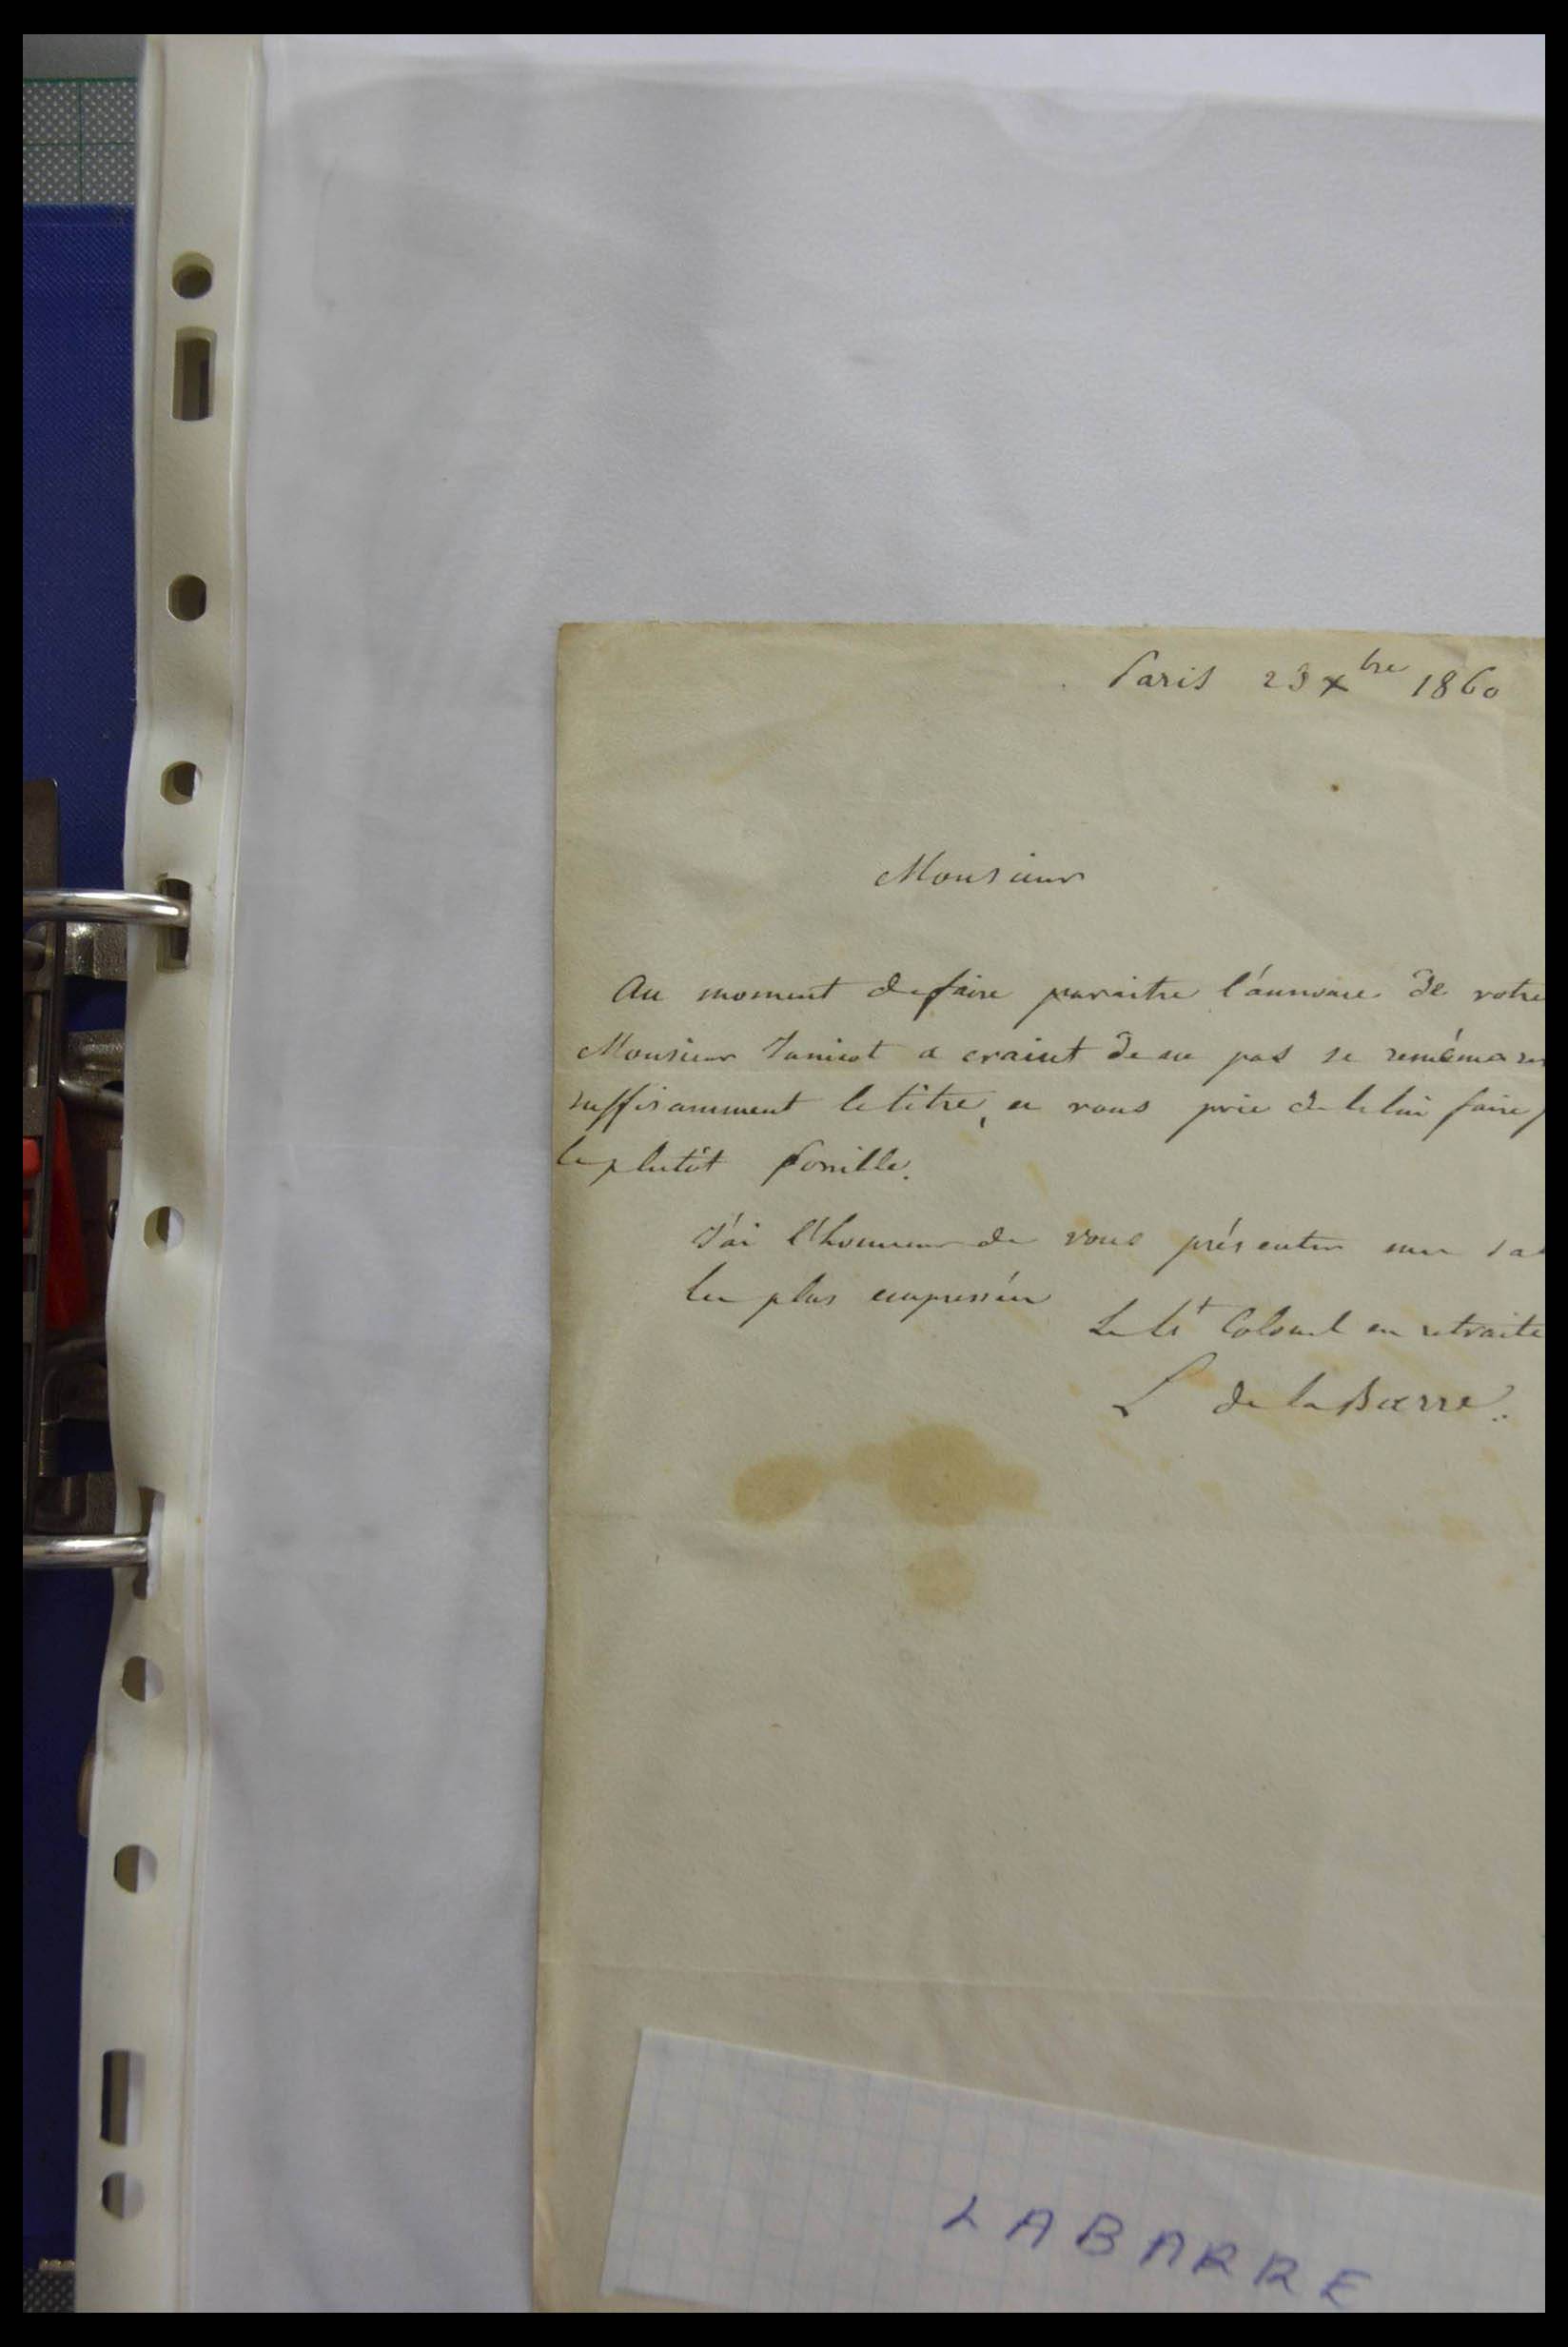 Paris 23 xbre 1860
Monsieur
Au moment de faire paraitre l'annonce de votre
Monsieur Janicot a craint de ne pas se remémorer
suffisamment le titre, et vous prie de le lui faire
le plutôt possible.
J'ai l'honneur de vous présenter mes sa
les plus empressées
Le Lt Colonel en retraite
L de la Barre.
LABARRE